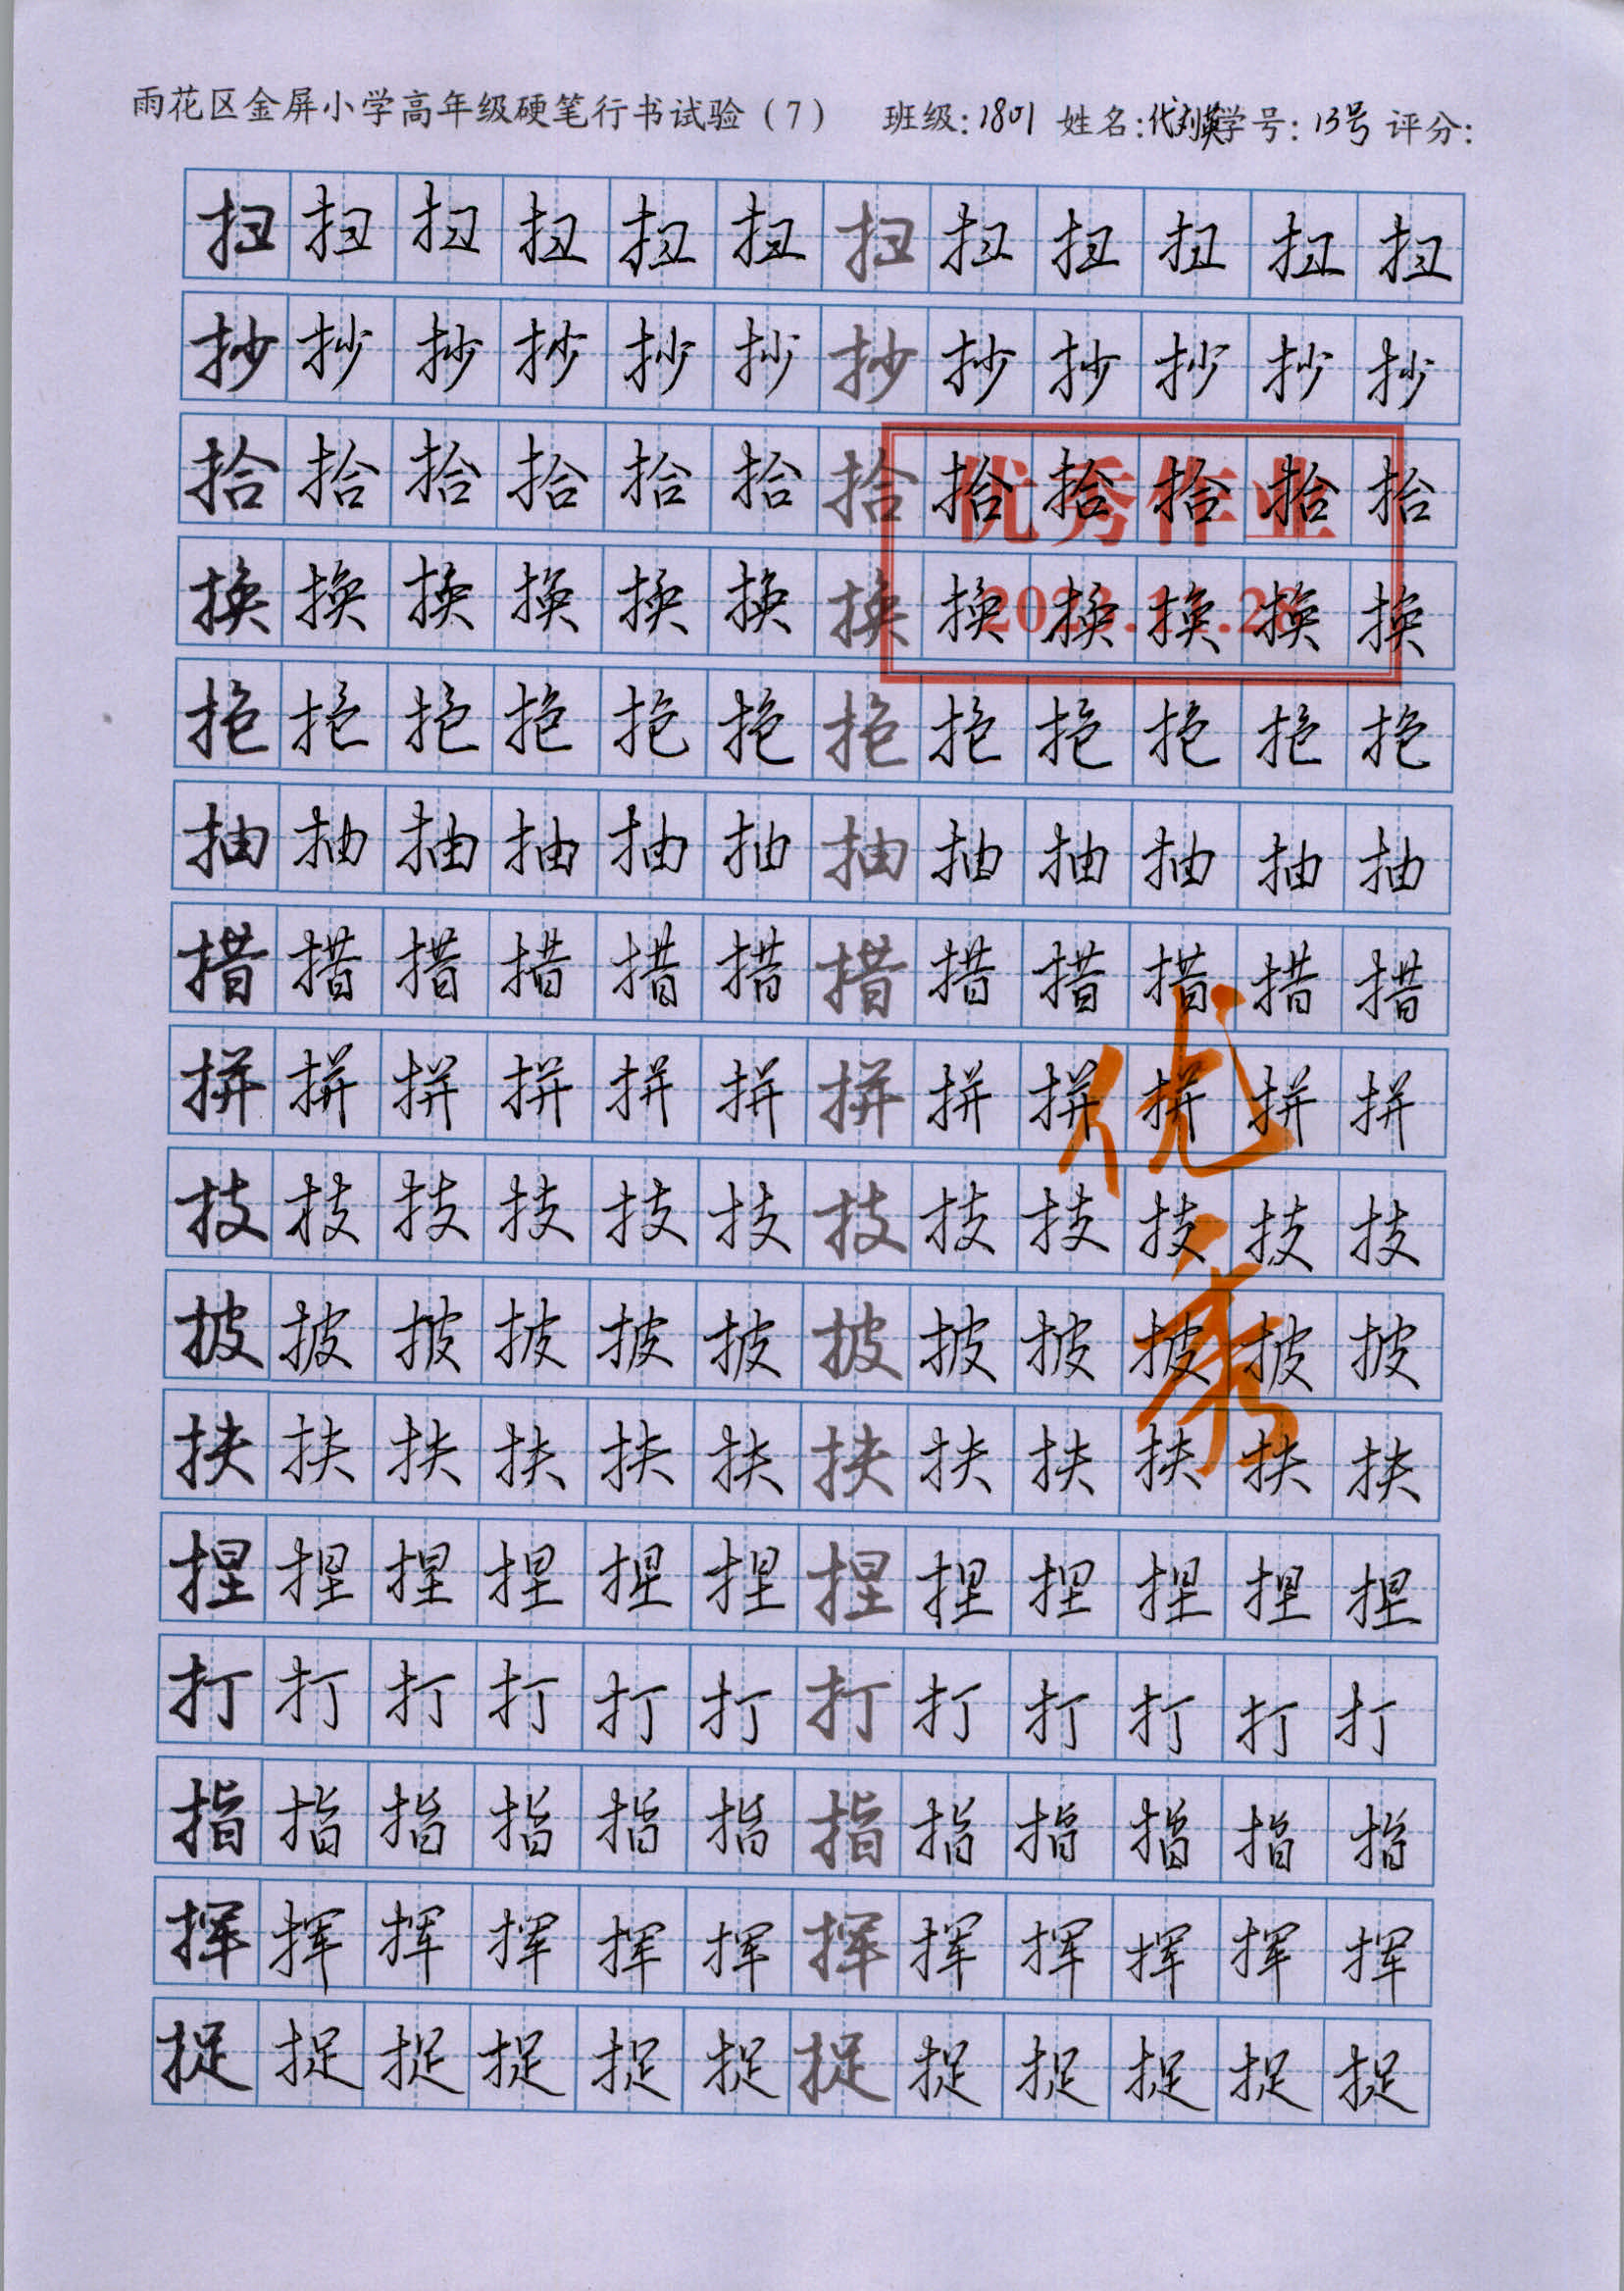 雨花区金屏小学高年级硬笔行书试验（7） 班级：1801 姓名：代刘英 学号：13号 评分：
扭扭扭扭扭扭扭扭扭扭扭扭
抄抄抄抄抄抄抄抄抄抄抄抄
拾拾拾拾拾拾拾拾拾拾拾拾
优秀作业
换换换换换换换换换换换换
抱抱抱抱抱抱抱抱抱抱抱抱
抽抽抽抽抽抽抽抽抽抽抽抽
措措措措措措措措措措措措
拼拼拼拼拼拼拼拼拼拼拼拼
技技技技技技技技技技技技
披披披披披披披披披披披披
优秀
扶扶扶扶扶扶扶扶扶扶扶扶
捏捏捏捏捏捏捏捏捏捏捏捏
打打打打打打打打打打打打
指指指指指指指指指指指指
挥挥挥挥挥挥挥挥挥挥挥挥
捉捉捉捉捉捉捉捉捉捉捉捉